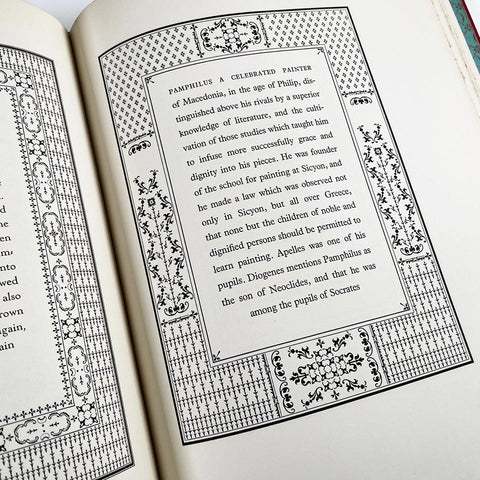 into
owed
also
rown
gain,
ain
PAMPHILUS A CELEBRATED PAINTER
of Macedonia, in the age of Philip, dis-
tinguished above his rivals by a superior
knowledge of literature, and the culti-
vation of those studies which taught him
to infuse more successfully grace and
dignity into his pieces. He was founder
of the school for painting at Sicyon, and
he made a law which was observed not
only in Sicyon, but all over Greece,
that none but the children of noble and
dignified persons should be permitted to
learn painting. Apelles was one of his
pupils. Diogenes mentions Pamphilus as
the son of Neoclides, and that he was
among the pupils of Socrates